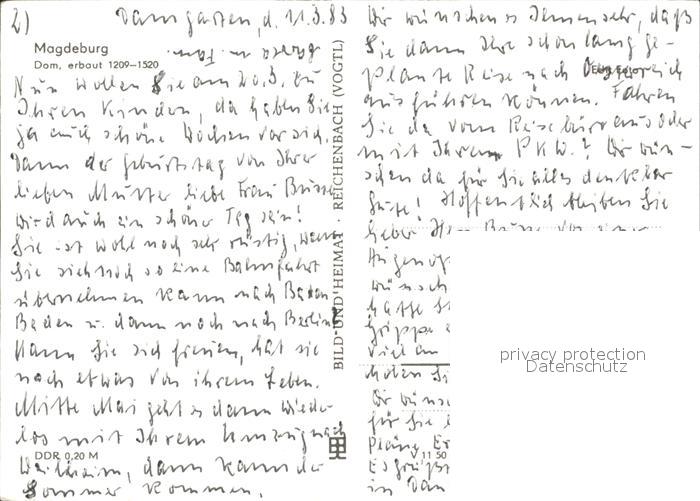 2) Damgarten, d. 11.3.83
Magdeburg
Dom, erbaut 1209—1520
Nun wollen Sie am 20.3. zu
Ihren Kindern, da haben Sie
ja auch schöne Wochen vor sich.
Dann der Geburtstag von Ihrer
lieben Mutter liebe Frau Busse
wird auch ein schöner Tag sein!
Sie ist wohl noch sehr rüstig, wenn
Sie sich noch so eine Bahnfahrt
übernehmen kann nach Baden
Baden u. dann noch nach Berlin?
Kann Sie sich freuen, hat sie
noch etwas von ihrem Leben.
Mitte Mai geht es dann wieder
los mit Ihrem Umzug nach
Weilheim, dann kann der
Sommer kommen.
DDR 0,20 M
BILD UND HEIMAT · REICHENBACH (VOGTL)
Wir wünschen es Ihnen sehr, daß
Sie dann Ihre schon lang ge-
plante Reise nach Österreich
ausführen können. Fahren
Sie da vom Reisebüro aus oder
mit Ihrem PKW? Wir wün-
schen da für Sie alles denkbar
Gute! Hoffentlich bleiben Sie
lieber Herr Busse von einer
Augenop
wünsch
hatte
Grippe
viel an
holen Si
Wir wüns
für Sie
Pläne
Es grüßt
in Dam
V 11 50
privacy protection
Datenschutz